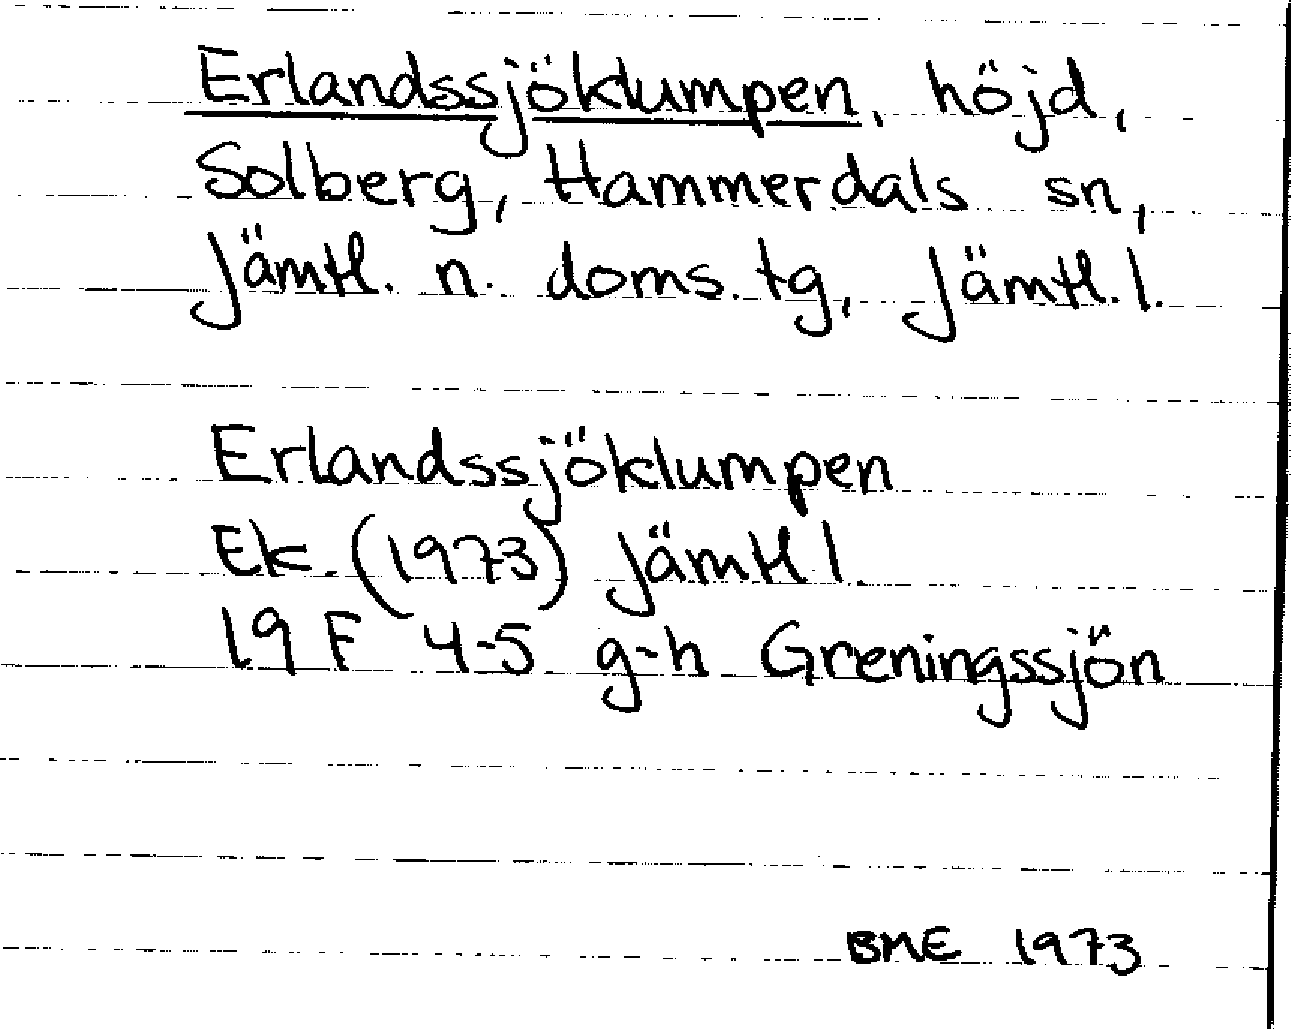 Erlandssjöklumpen, höjd,
Solberg, Hammerdals sn,
Jämtl. n. doms. tg, Jämtl. l.
Erlandssjöklumpen
Ek. (1973) Jämtl l.
19 F 4-5 g-h Greningssjön
BME 1973